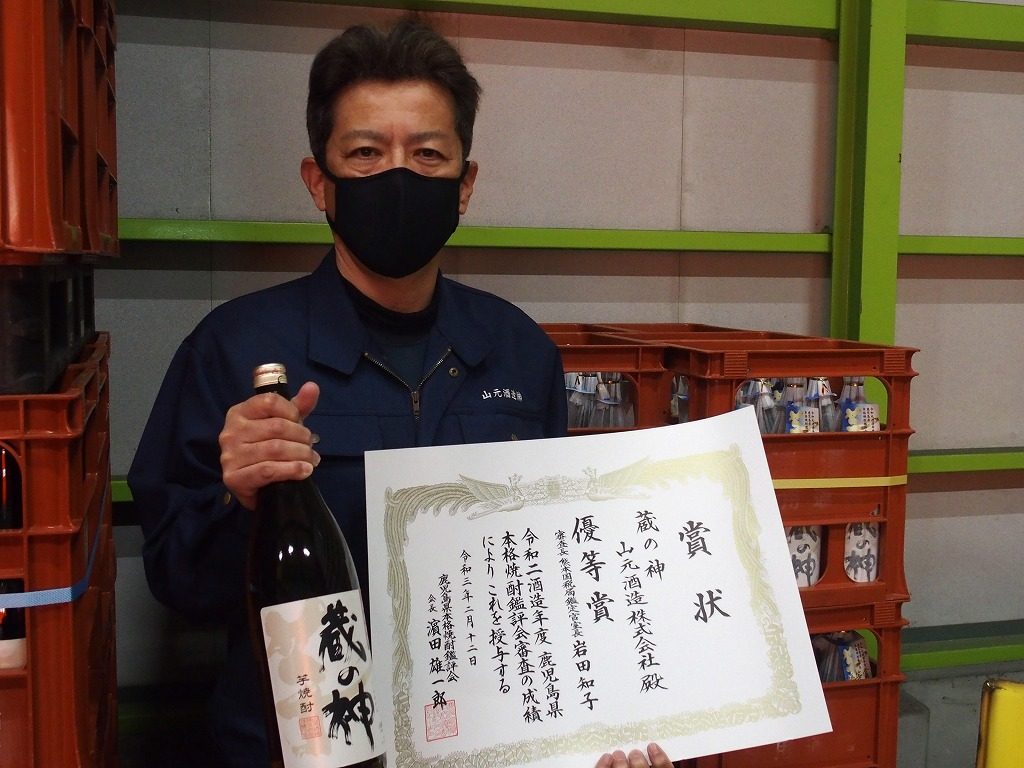 賞状
蔵の神
山元酒造株式会社殿
優等賞
審査長熊本国税局鑑定官室長 岩田知子
令和二酒造年度鹿児島県
本格焼酎鑑評会審査の成績
によりこれを授与する
令和三年二月十二日
鹿児島県本格焼酎鑑評会
会長 濵田雄一郎
山元酒造㈱
蔵の神
芋焼酎
蔵の神
蔵の神